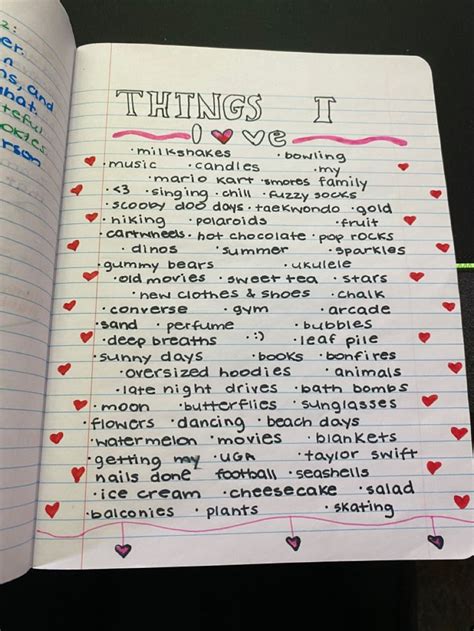 2:
er
n
s, and
what
teful
ookies
erson
THINGS I
love
• milkshakes • bowling
• music • candles • my
• mario kart • smores family
• <3 • singing • chill • fuzzy socks
• scooby doo days • taekwondo • gold
• hiking • polaroids • fruit
• cartwheels • hot chocolate • pop rocks
• dinos • summer • sparkles
• gummy bears • ukulele
• old movies • sweet tea • stars
• new clothes & shoes • chalk
• converse • gym • arcade
• sand • perfume • bubbles
• deep breaths • :) • leaf pile
• sunny days • books • bonfires
• oversized hoodies • animals
• late night drives • bath bombs
• moon • butterflies • sunglasses
• flowers • dancing • beach days
• watermelon • movies • blankets
• getting my • UGA • taylor swift
nails done football • seashells
• ice cream • cheesecake • salad
• balconies • plants • skating